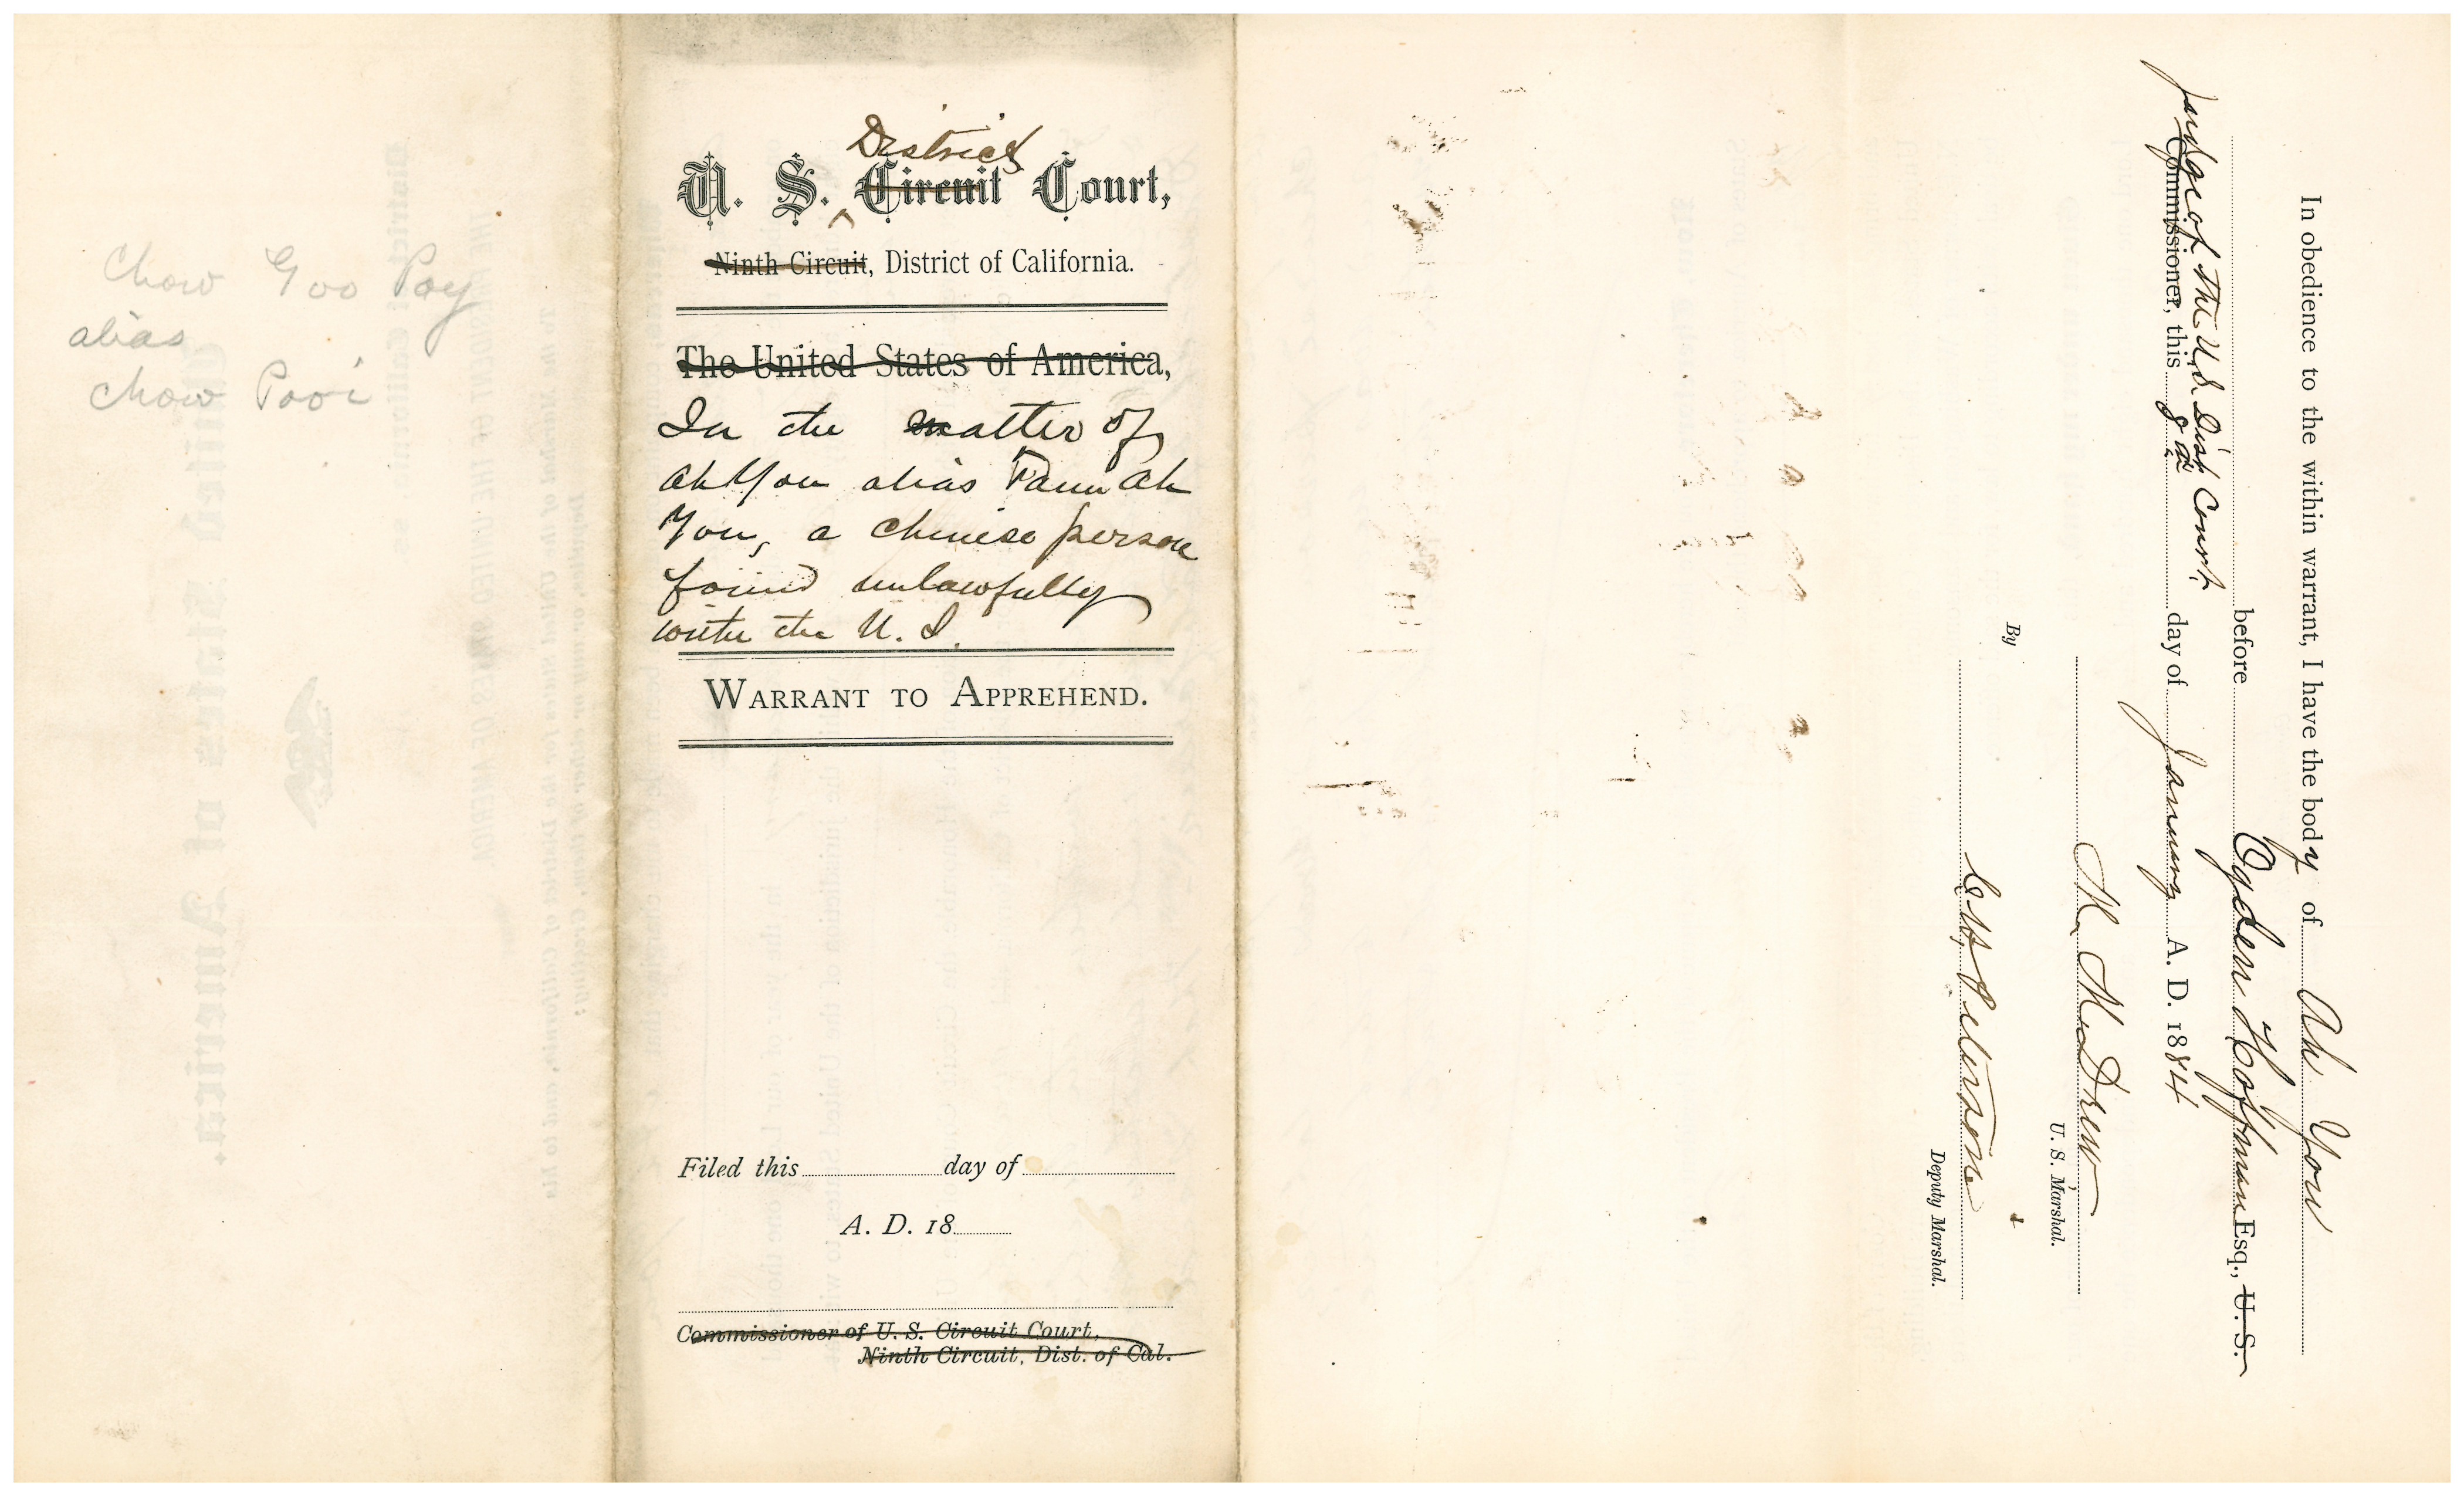 Chow Goo Poy
alias
Chow Pooi
District
U. S. Circuit Court,
Ninth Circuit, District of California.
The United States of America,
In the matter of
Ah You alias Faun Ah
You, a Chinese person
found unlawfully
within the U. S.
WARRANT TO APPREHEND.
Filed this day of
A. D. 18
Commissioner of U. S. Circuit Court,
Ninth Circuit, Dist. of Cal.
In obedience to the within warrant, I have the body of Ah You
before Ogden Hoffman Esq., U. S.
Judge of the U.S. Dist Court
Commissioner, this 8th day of January A. D. 1884
M. M. Drew
U. S. Marshal.
By C. H. Peterson
Deputy Marshal.